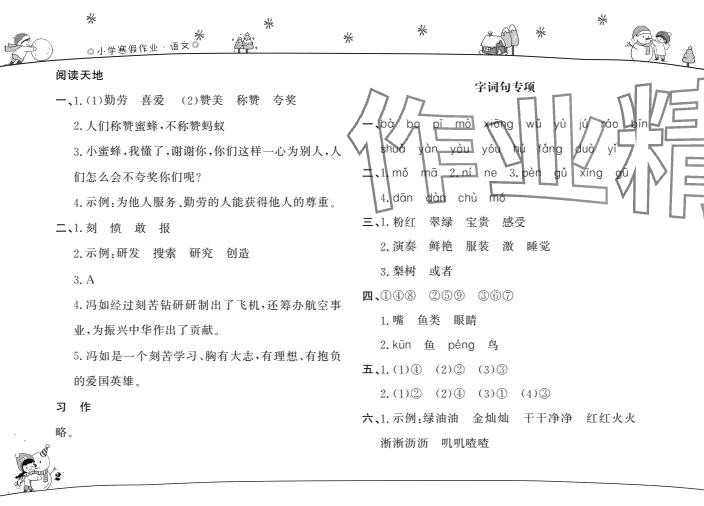 小学寒假作业·语文
阅读天地
一、1.(1)勤劳 喜爱 (2)赞美 称赞 夸奖
2.人们称赞蜜蜂,不称赞蚂蚁
3.小蜜蜂,我懂了,谢谢你,你们这样一心为别人,人
们怎么会不夸奖你们呢?
4.示例:为他人服务、勤劳的人能获得他人的尊重。
二、1.刻 愤 敢 报
2.示例:研发 搜索 研究 创造
3.A
4.冯如经过刻苦钻研研制出了飞机,还筹办航空事
业,为振兴中华作出了贡献。
5.冯如是一个刻苦学习、胸有大志,有理想、有抱负
的爱国英雄。
习 作
略。
2
字词句专项
一、bà bo pī mò xiōng wǔ yù jú ráo bīn
shuǎ yàn yòu yóu hǔ fǎng duò yǐ
二、1.mǒ mā 2.ní ne 3.pèn gǔ xíng gū
4.dān dàn chù mó
三、1.粉红 翠绿 宝贵 感受
2.演奏 鲜艳 服装 激 睡觉
3.梨树 或者
四、①④⑧ ②⑤⑨ ③⑥⑦
1.嘴 鱼类 眼睛
2.kūn 鱼 péng 鸟
五、1.(1)④ (2)② (3)③
2.(1)② (2)④ (3)① (4)③
六、1.示例:绿油油 金灿灿 干干净净 红红火火
淅淅沥沥 叽叽喳喳
作业精